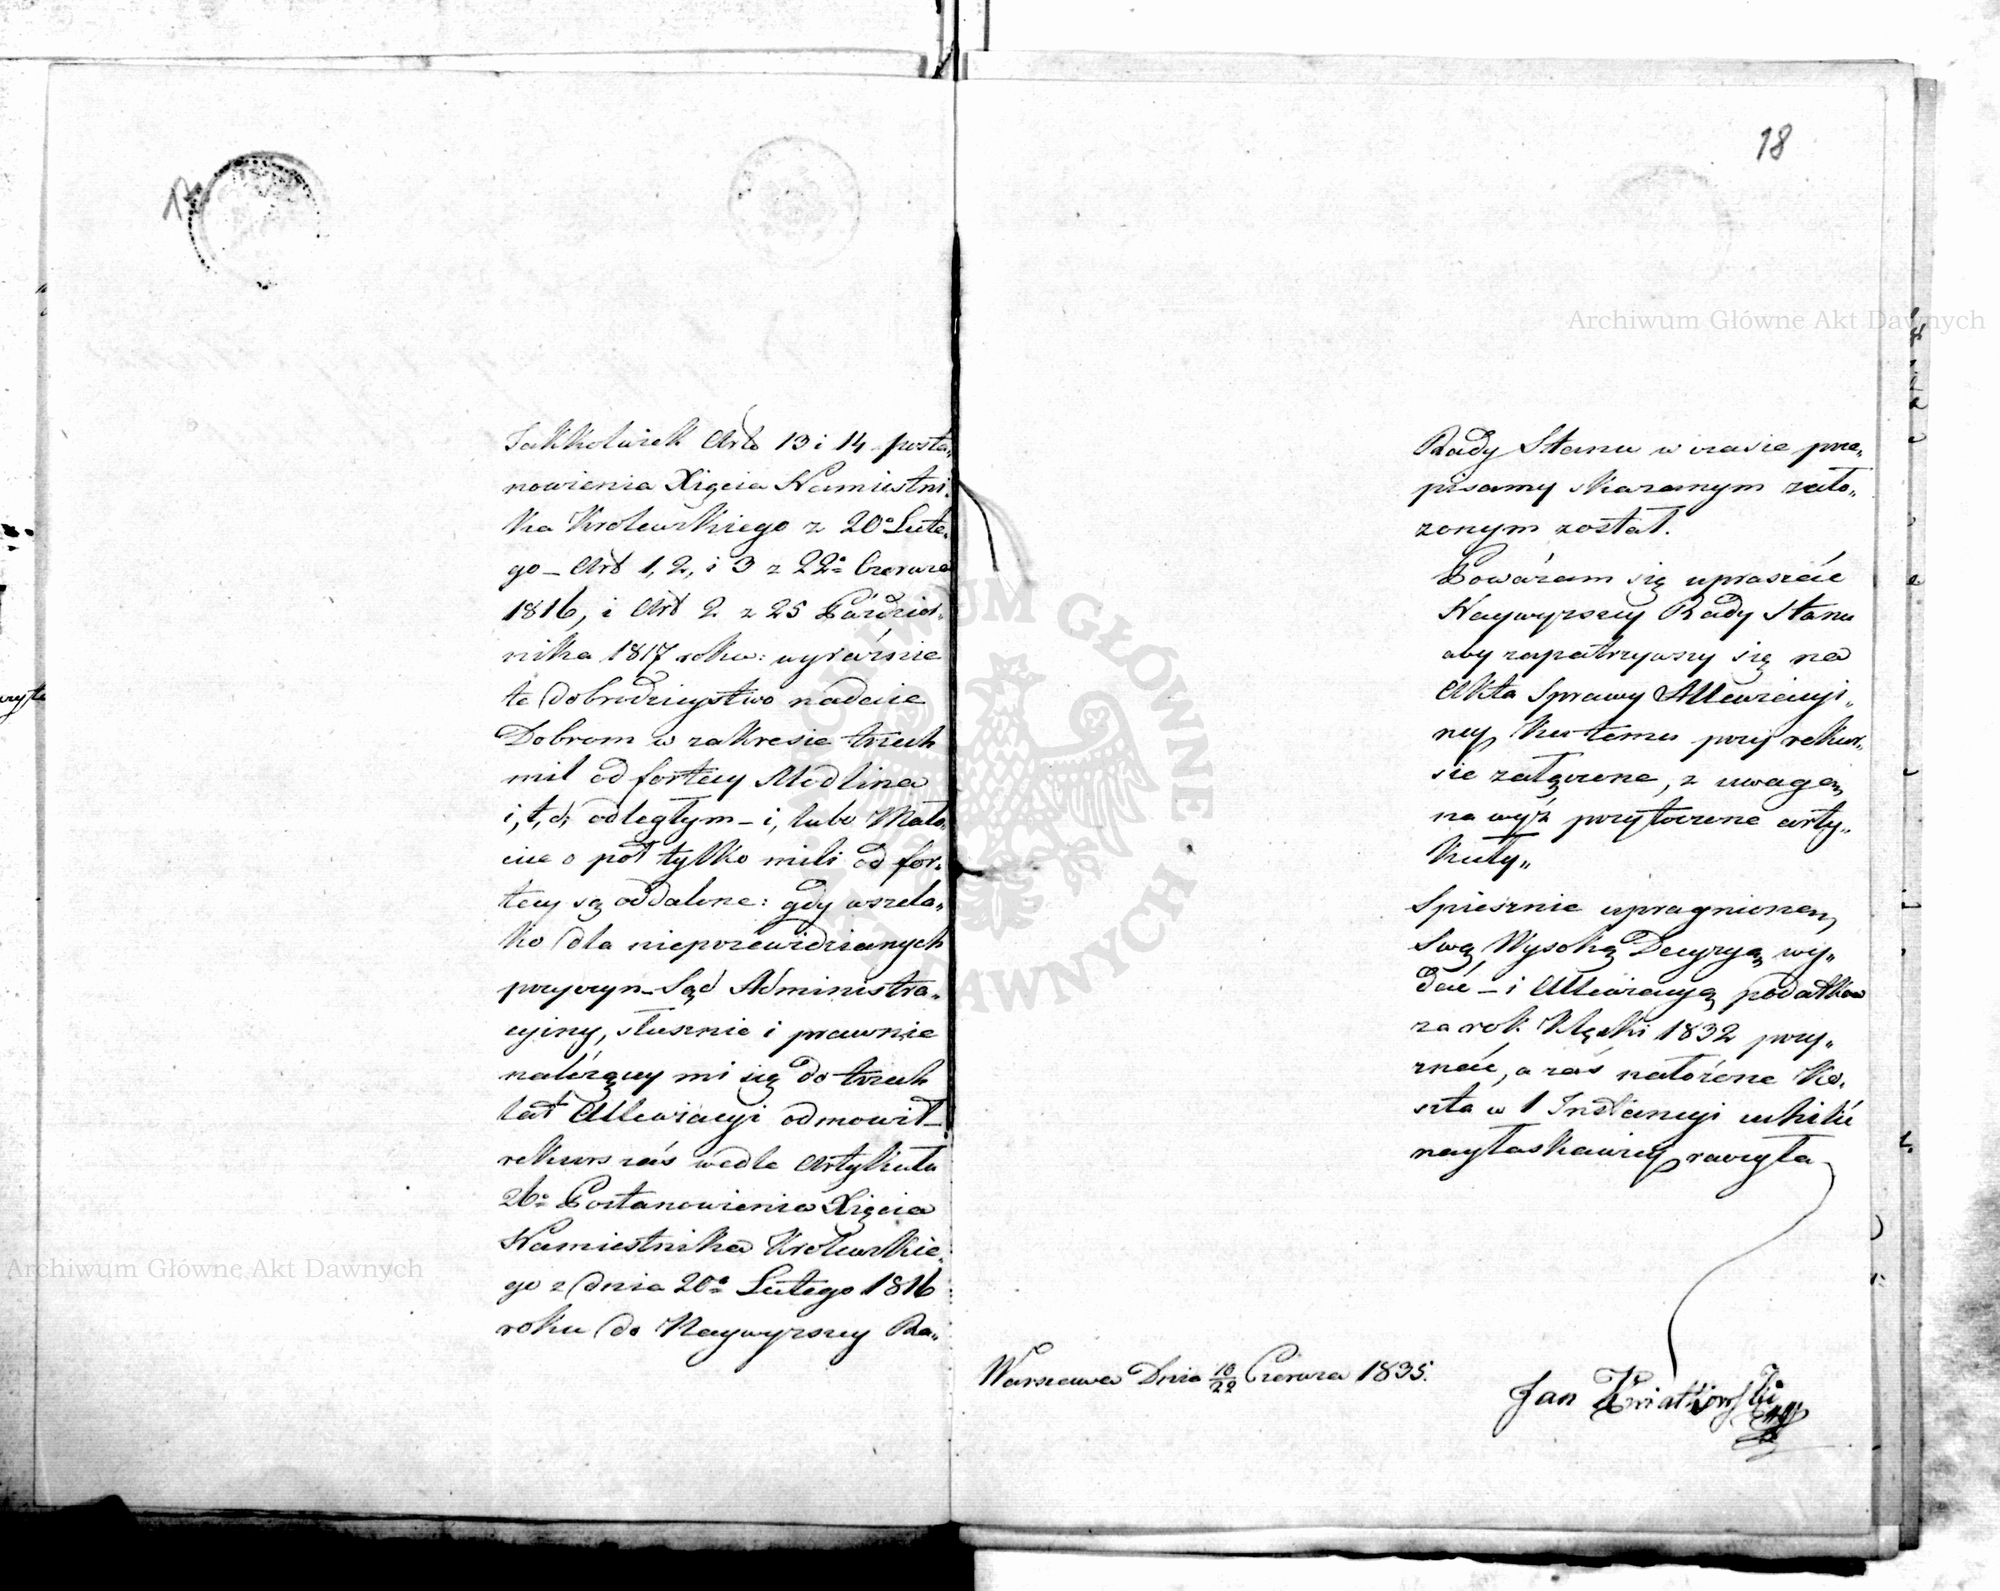 Jakkolwiek Art 13 i 14 posta„
nowienia Xięcia Namiestni„
ka Krolewskiego z 20º Lute„
go – Art 1, 2, i 3 z 22º Czerwca
1816, i Art 2 z 25 Paździer„
nika 1817 roku: wyraźnie
te dobrodzieystwo nadaie
Dobrom w zakresie trzech
mil od fortecy Modlina
i, t, d, odległym – i, lubo Mało„
cice o poł tylko mili od for„
tecy są oddalone: gdy wszela„
ko dla nieprzewidzianych
przyczyn – Sąd Administra„
cyiny, słusznie i prawnie
należący mi się do trzech
lat Allewiacyi odmowił –
rekurs zaś wedle Artykułu
26º Postanowienia Xięcia
Namiestnika Krolewskie„
go z dnia 20º Lutego 1816
roku do Naywyzszey Ra„
18
Rady Stanu w czasie prze„
pisamy skazanym zało„
zonym został.
Poważam się upraszać
Naywyzszey Rady Stanu
aby zapatrzywszy się na
Akta Sprawy Allewiacyi„
ney, ku temu przy rekur„
sie załączone, z uwagą,
na wyż przytoczone arty„
kuły„
Spiesznie upragnioną,
Swą Wysoką Decyzyą wy„
dać – i Allewiacyą podatków
za rok klęski 1832 przy„
znać, a zaś nałożone Ko„
szta w 1 Instancyi uchilić
nayłaskawiey raczyła
Warszawa Dnia 10/22 Czerwca 1835.
Jan Kwiatkowski
Archiwum Główne Akt Dawnych
Archiwum Główne Akt Dawnych
ARCHIWUM GŁÓWNE AKT DAWNYCH